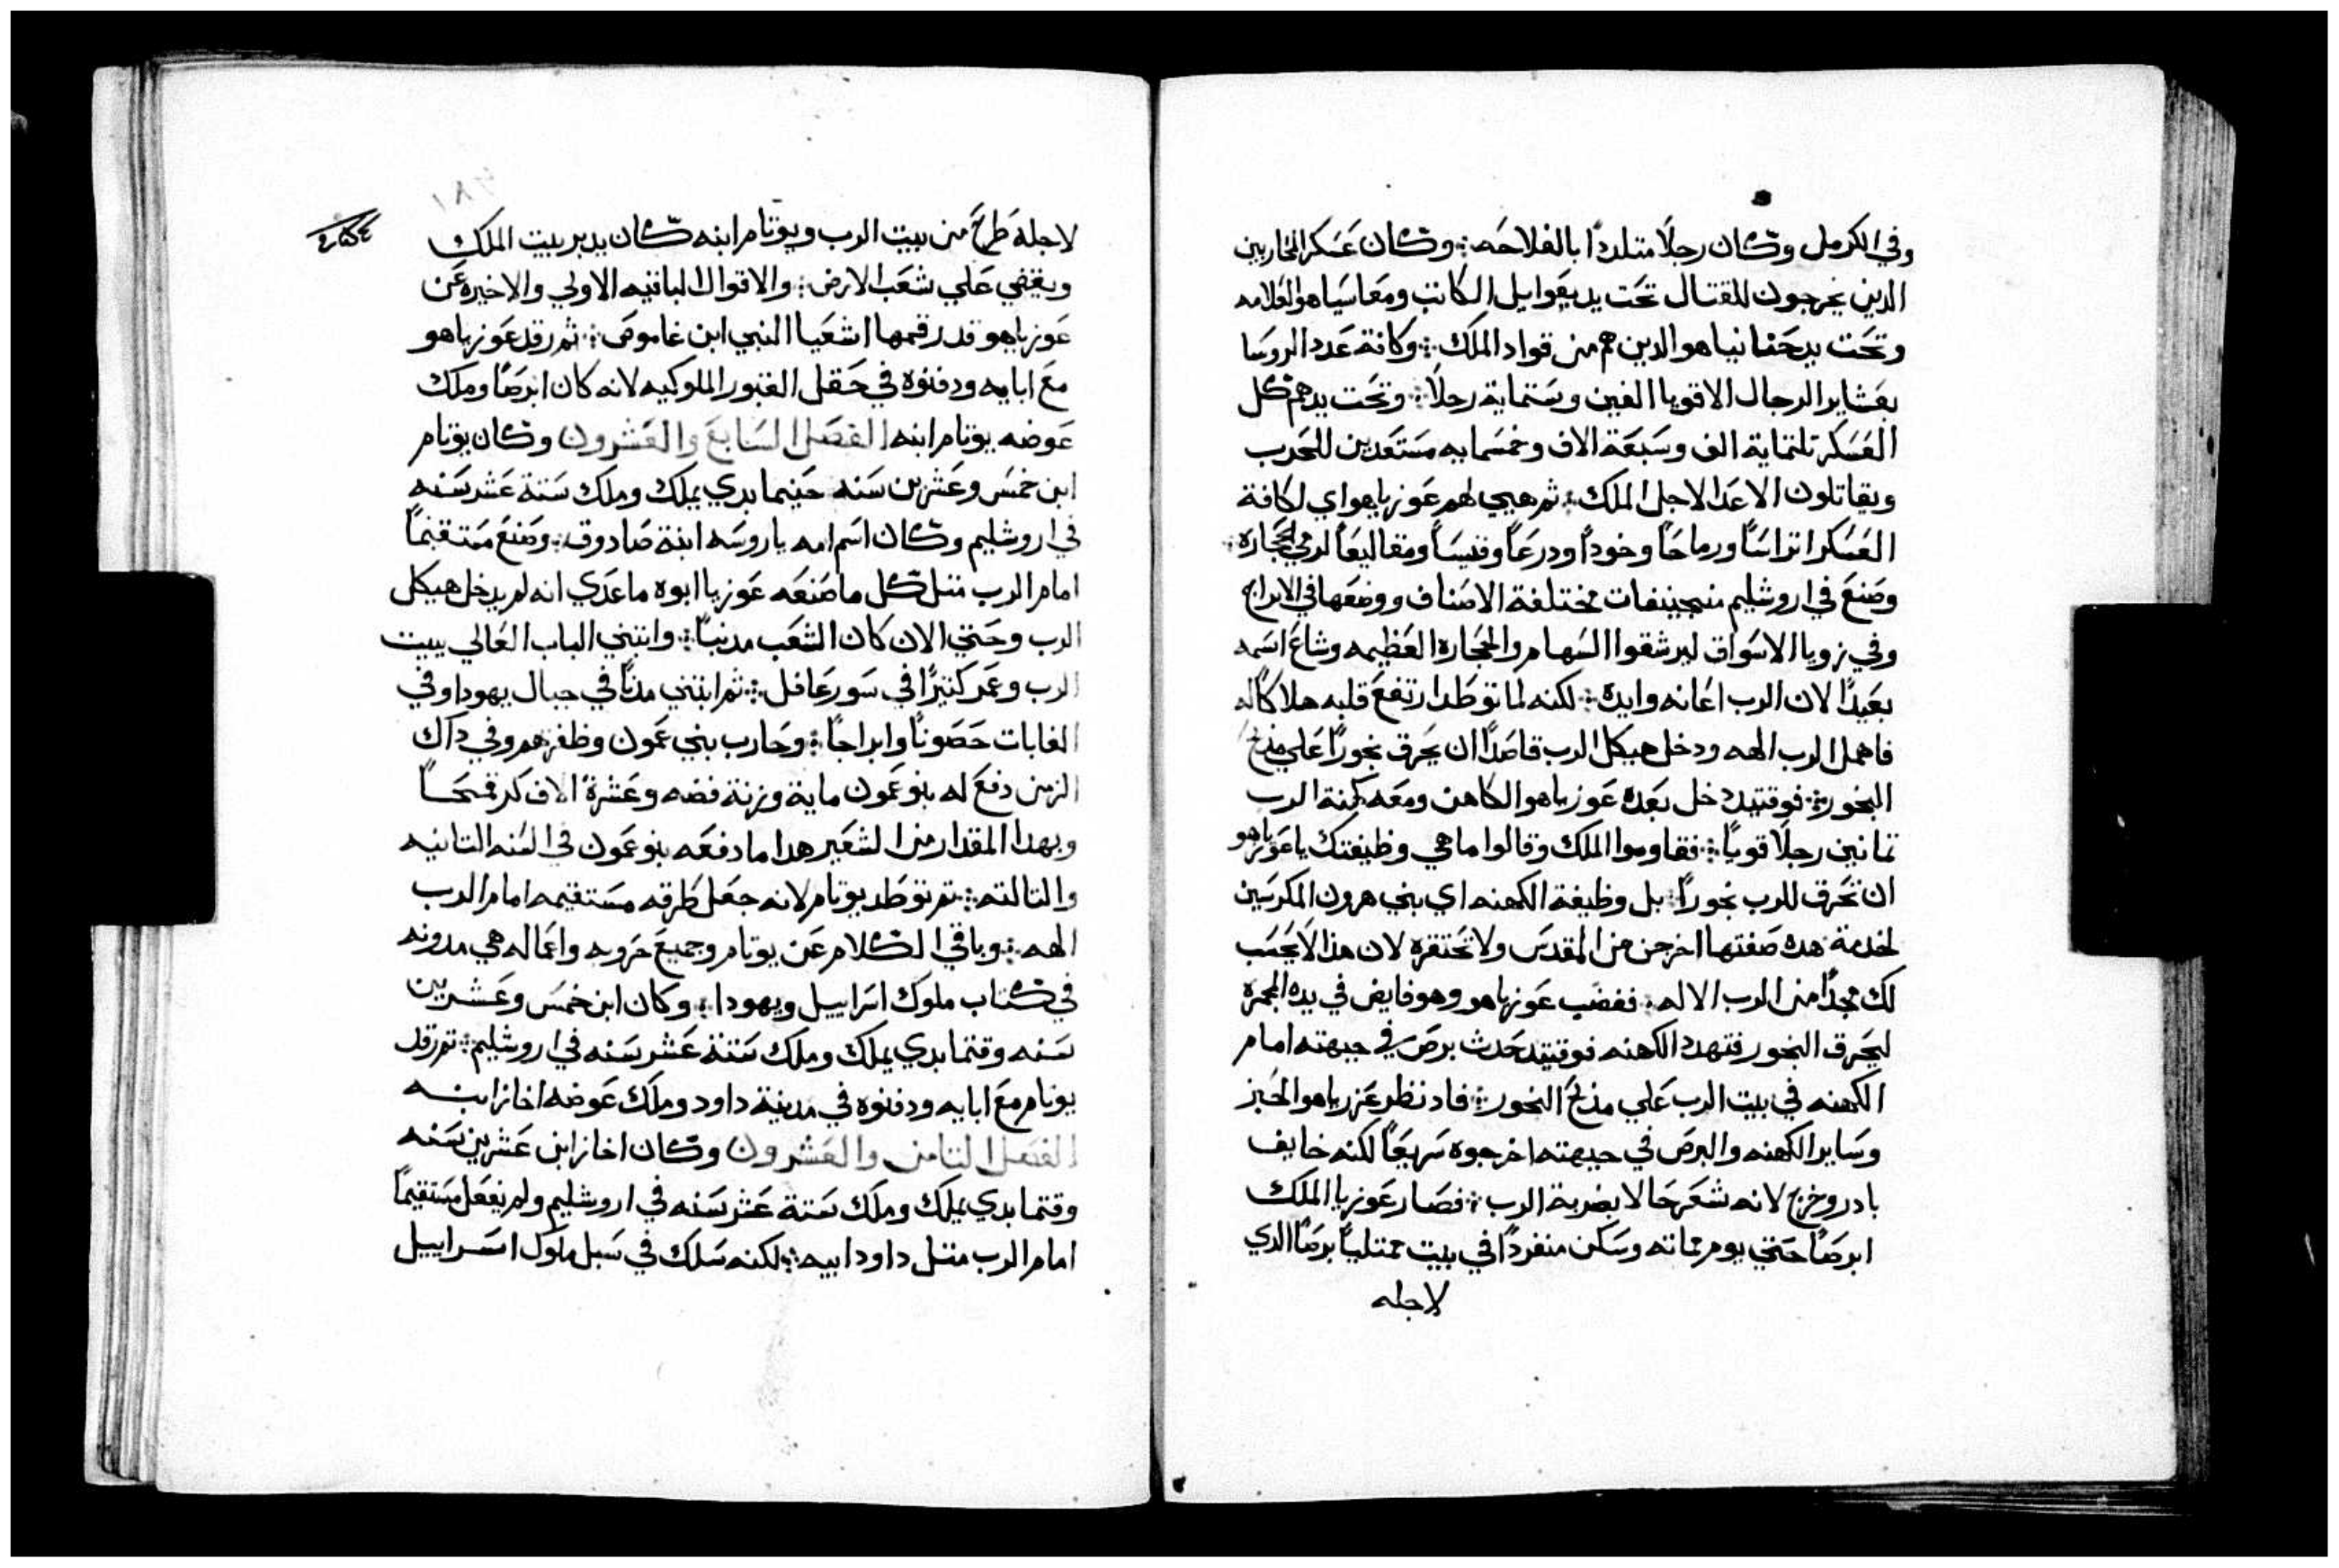 وفي الكرمل وكان رجلًا متلددًا بالفلاحه܀ وكان عسكر المحاربين
الدين يخرجون للقتال تحت يد يعوايل الكاتب ومعاسياهو العلامه
وتحت يد حنانياهو الدين هم من قواد الملك܀ وكانة عدد الروسا
بعشاير الرجال الاقويا الفين وستماية رجلًا܀ وتحت يدهم كل
العسكر تلتماية الف وسبعة الاف وخمسمايه مستعدين للحرب
ويقاتلون الاعدا لاجل الملك܀ ثم هيي لهم عوزياهو اي لكافة
العسكر اتراسًا ورماحًا وخودًا ودرعًا وقيسًا ومقاليعًا لرمي الحجارة܀
وصنع في اروشليم منجينيفات مختلفة الاصناف ووضعها في الابراج
وفي زويا الاسواق ليرشقوا السهام والحجارة العظيمه وشاع اسمه
بعيدًا لان الرب اعانه وايده܀ لكنه لما توطد ارتفع قلبه هلاكًا له
فاهمل الرب الهه ودخل هيكل الرب قاصدًا ان يحرق بخورًا علي مذبح
البخور܀ فوقتيد دخل بعده عوزياهو الكاهن ومعه كهنة الرب
تمانين رجلًا قويًا܀ فقاوموا الملك وقالوا ما هي وظيفتك يا عوزياهو
ان تحرق للرب بخورًا܀ بل وظيفة الكهنه اي بني هرون المكرسين
لخدمة هده صفتها اخرجن من المقدس ولا تحتقره لان هذا لا يحسب
لك مجدًا من الرب الاله܀ فغضب عوزياهو وهو قابض في يده المجمرة
ليحرق البخور فتهدد الكهنه فوقتيد حدث برص في جبهته امام
الكهنه في بيت الرب علي مذبح البخور܀ فاد نظر عزرياهو الحبر
وساير الكهنه والبرص في جبهته اخرجوه سريعًا لكنه خايف
بادر وخرج لانه شعر حالا بضربة الرب܀ فصار عوزيا الملك
ابرصًا حتي يوم مماته وسكن منفردًا في بيت ممتليًا برصًا الدي
لاجله
لاجله طرح من بيت الرب ويوتام ابنه كان يدبر بيت الملك
ويقضي علي شعب الارض܀ والاقوال الباقيه الاولي والاخيره عن
عوزياهو قد رقمها اشعيا النبي ابن غاموص܀ ثم رقد عوزياهو
مع ابايه ودفنوه في حقل القبور الملوكيه لانه كان ابرصًا وملك
عوضه يوتام ابنه الفصل السابع والعشرون وكان يوتام
ابن خمس وعشرين سنه حينما بدي يملك وملك ستة عشر سنه
في اروشليم وكان اسم امه ياروسه ابنة صادوق܀ وصنع مستقيمًا
امام الرب متل كل ما صنعه عوزيا ابوه ما عدي انه لم يدخل هيكل
الرب وحتي الان كان الشعب مدنبًا܀ وابتني الباب العالي ببيت
الرب وعمر كتيرًا في سور عافل܀ ثم ابتني مدنًا في جبال يهودا وفي
الغابات حصونًا وابراجًا܀ وحارب بني عمون وظفر بهم وفي داك
الزمن دفع له بنو عمون ماية وزنة فضه وعشرة الاف كر قمحًا
وبهدا المقدار من الشعير هدا ما دفعه بنو عمون في السنه التانيه
والتالته܀ تم توطد يوتام لانه جعل طرقه مستقيمه امام الرب
الهه܀ وباقي الكلام عن يوتام وجميع حروبه واعماله هي مدونه
في كتاب ملوك اسراييل ويهودا܀ وكان ابن خمس وعشرين
سنه وقتما بدي يملك وملك ستة عشر سنه في اروشليم܀ تم رقد
يوتام مع ابايه ودفنوه في مدينة داود وملك عوضه اخاز ابنه
الفصل التامن والعشرون وكان اخاز ابن عشرين سنه
وقتما بدي يملك وملك ستة عشر سنه في اروشليم ولم يفعل مستقيمًا
امام الرب متل داود ابيه܀ لكنه سلك في سبل ملوك اسراييل